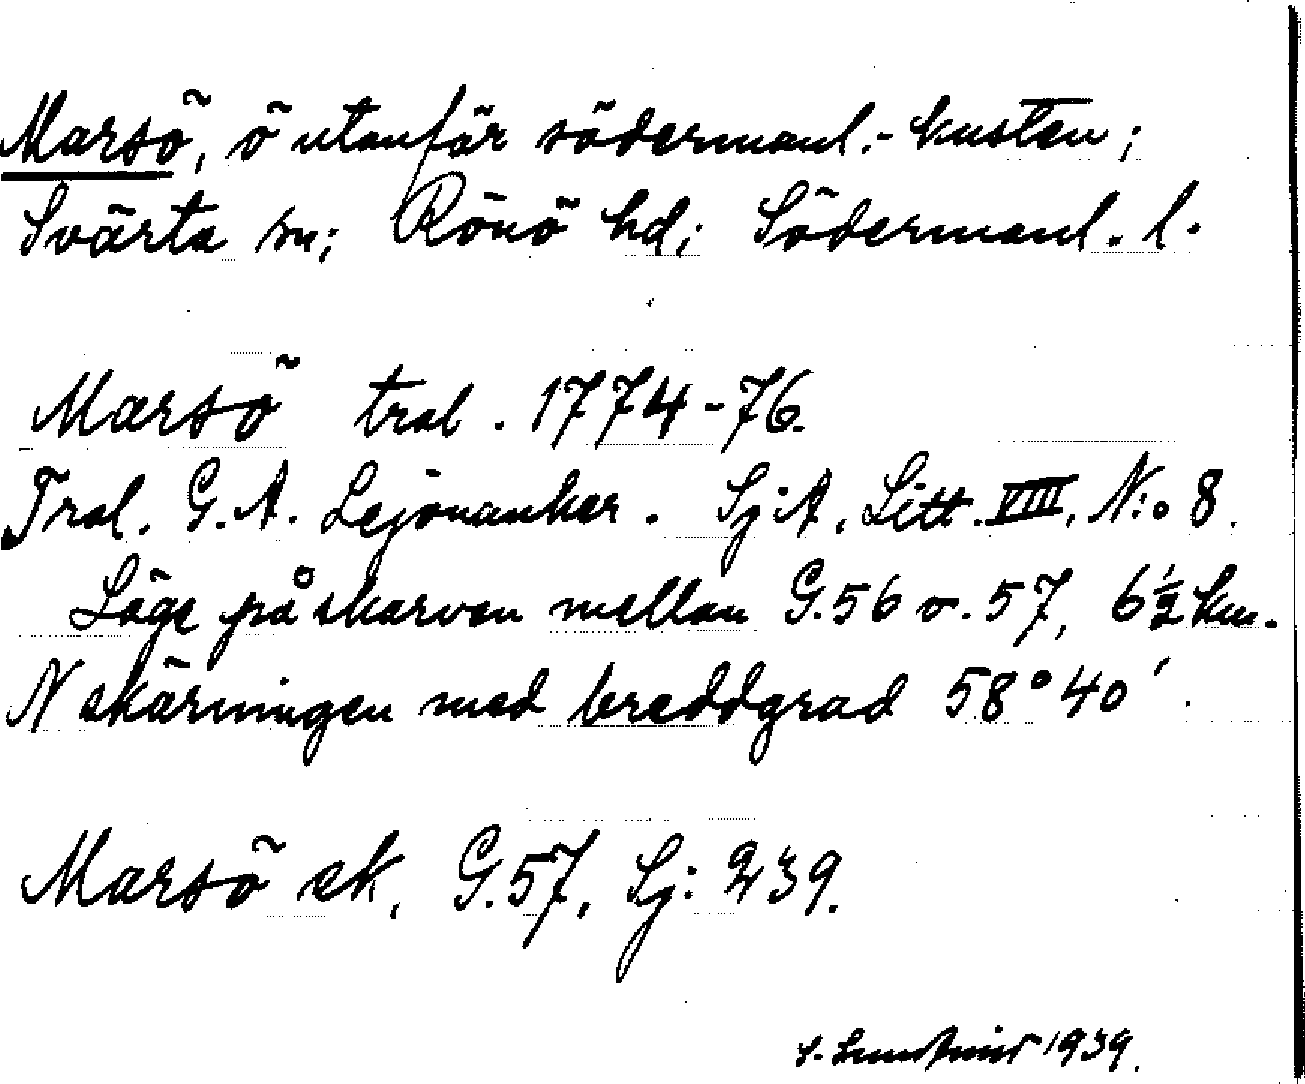 Marsö, ö utanför södermanl.-kusten;
Svärta sn; Rönö hd; Södermanl. l.
Marsö trol. 1774-76.
Trol. G. A. Lejonanker. Sj:A, Litt. VIII, N:o 8.
Läge på skarven mellan G.56 o. 57, 6½ km.
N skärningen med breddgrad 58°40′.
Marsö sk, G.57, Sj: 239.
S. 1939.